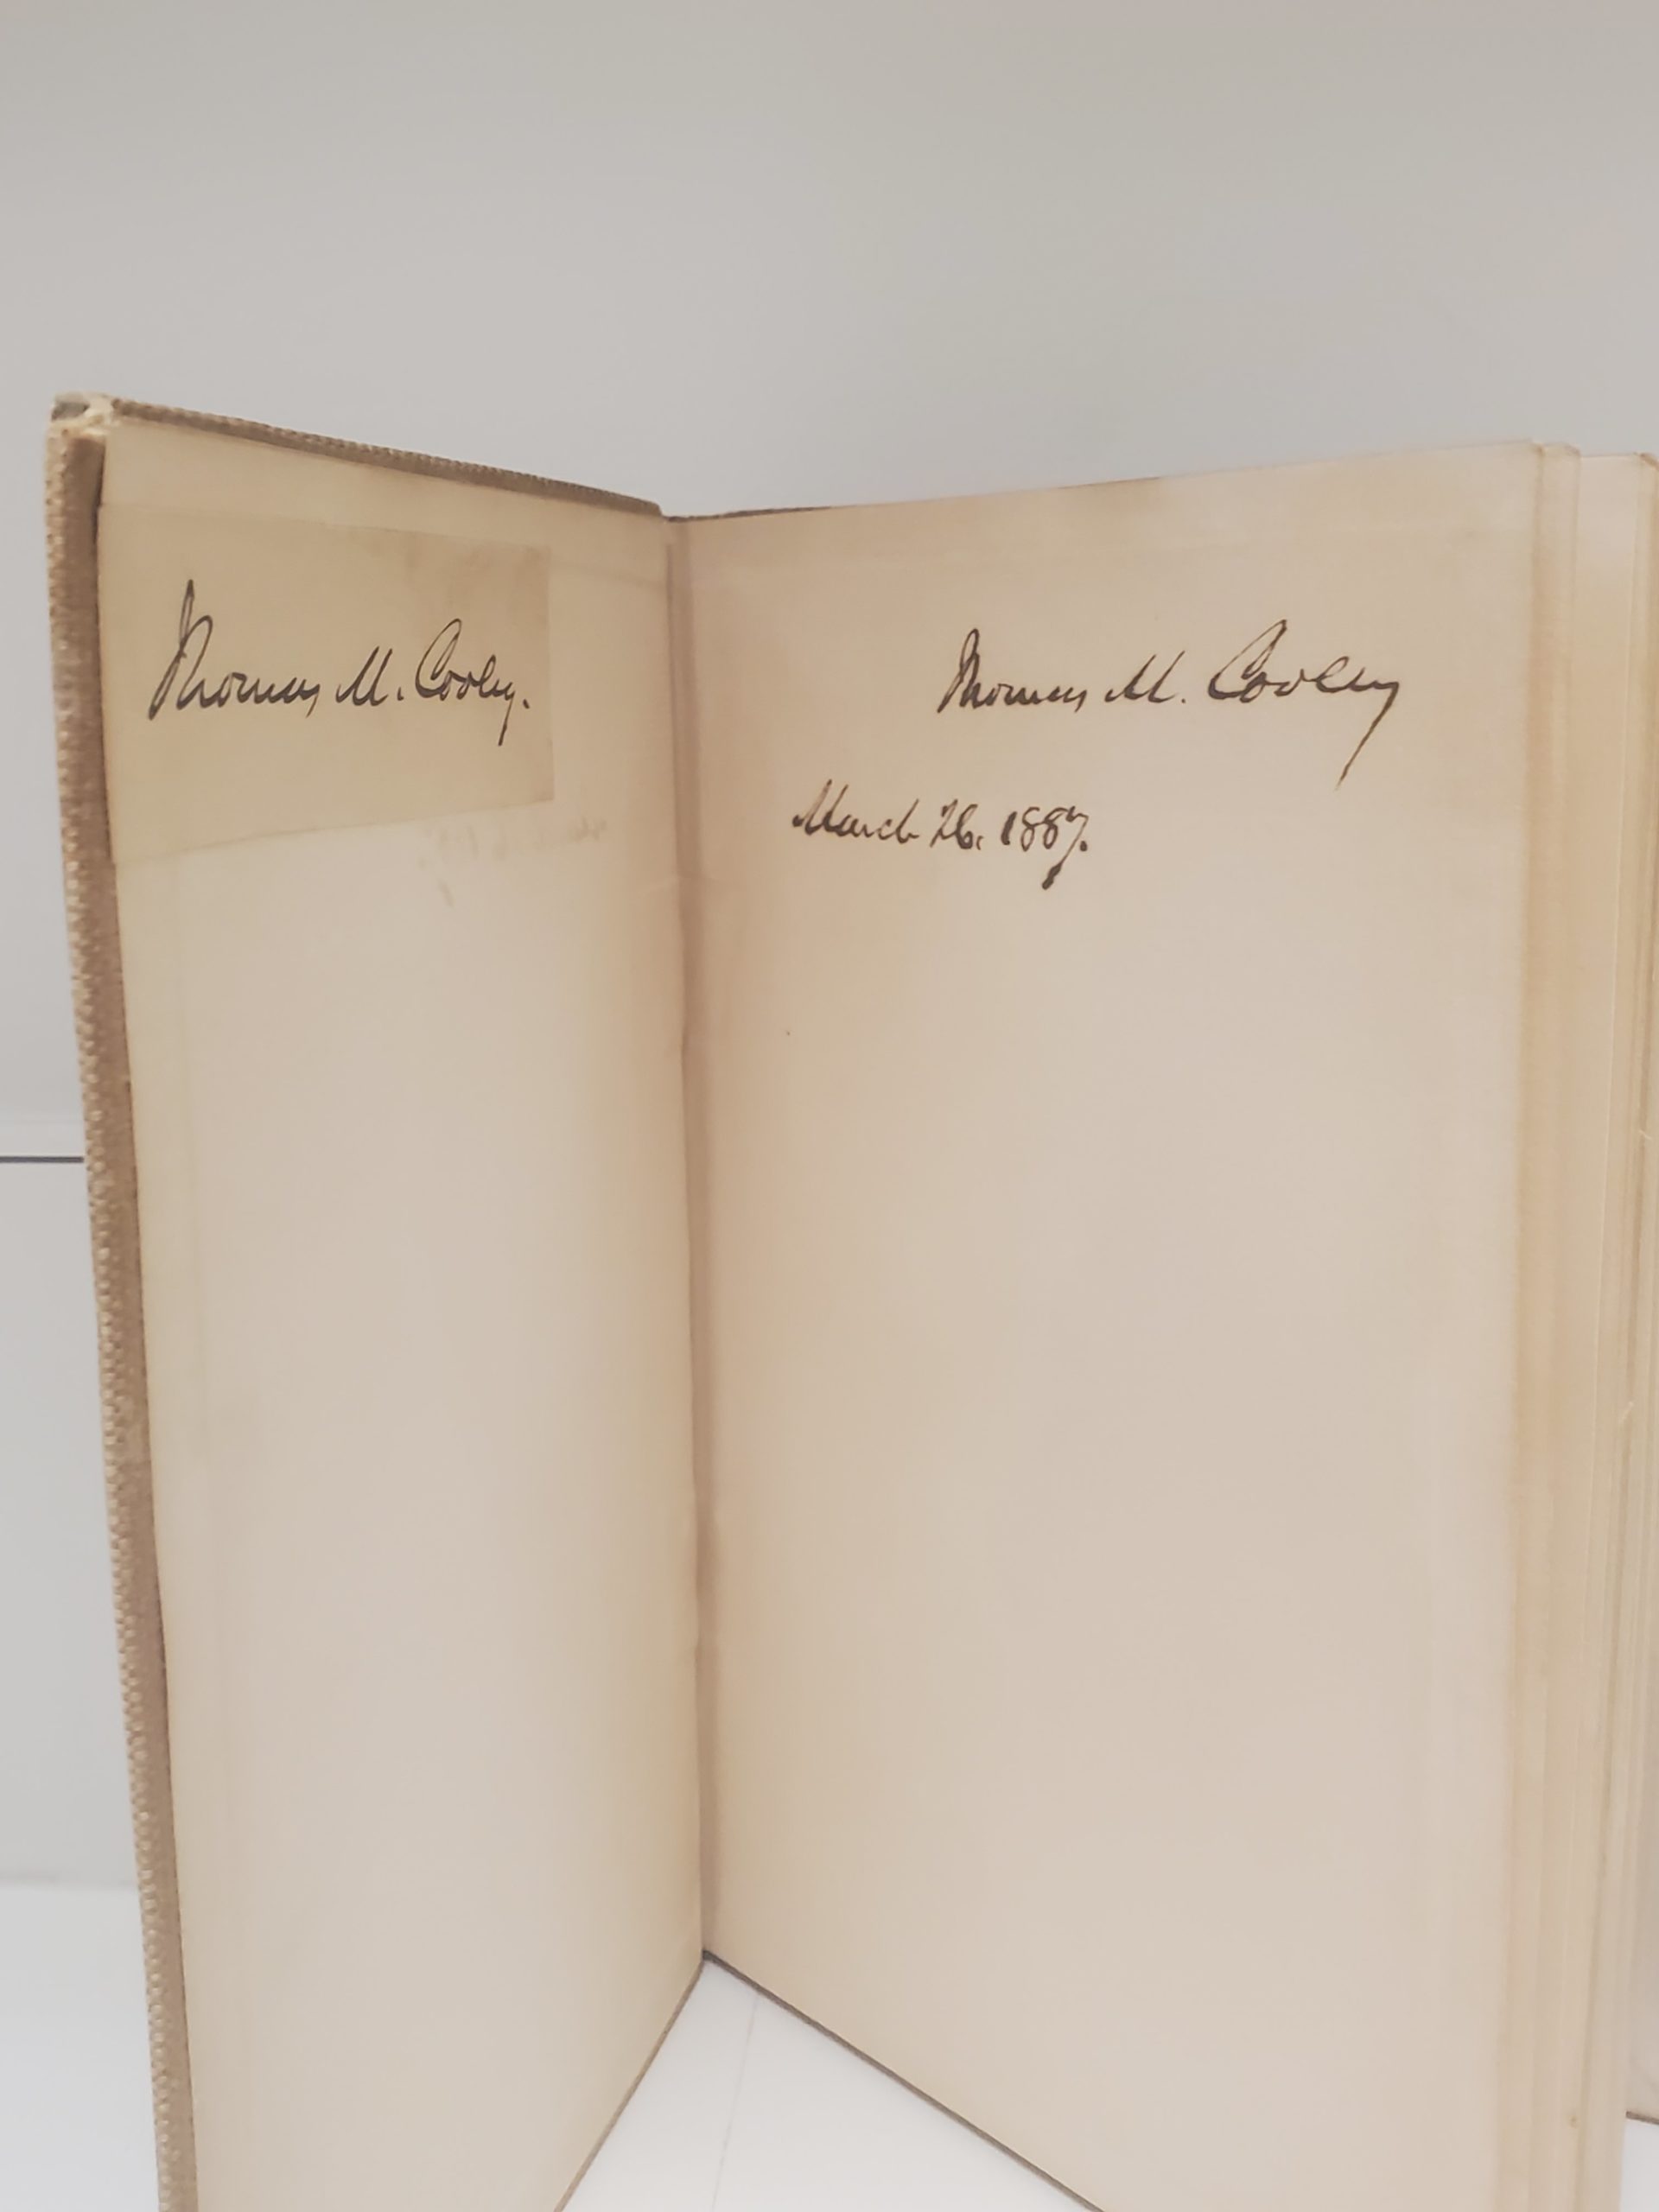 Thomas M. Cooley.
Thomas M. Cooley
March 26. 1887.